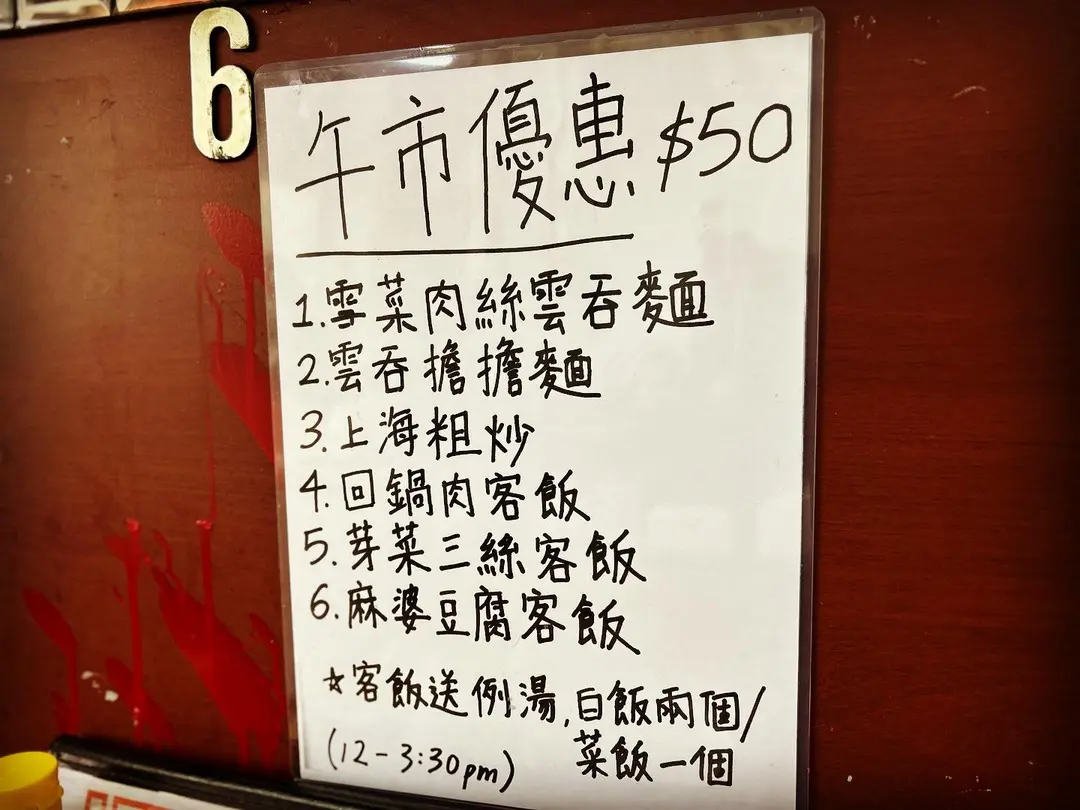 6
午市優惠 $50
1.雪菜肉絲雲吞麵
2.雲吞擔擔麵
3.上海粗炒
4.回鍋肉客飯
5.芽菜三絲客飯
6.麻婆豆腐客飯
☆客飯送例湯,白飯兩個/
菜飯一個
(12-3:30pm)